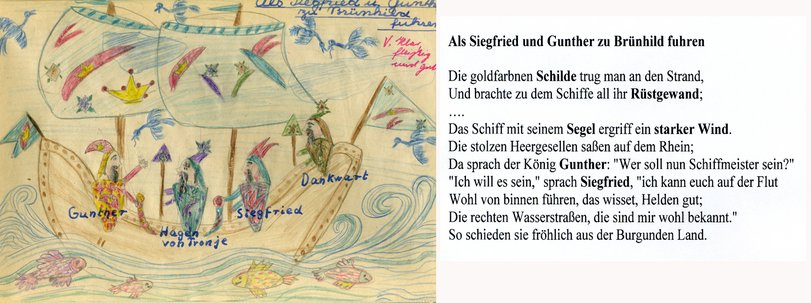 Als Siegfried u. Gunther
zu Brünhild
fuhren
V. Kla.
fleißig
und gut
Gunther
Hagen
von Tronje
Siegfried
Dankwart
Als Siegfried und Gunther zu Brünhild fuhren
Die goldfarbnen Schilde trug man an den Strand,
Und brachte zu dem Schiffe all ihr Rüstgewand;
....
Das Schiff mit seinem Segel ergriff ein starker Wind.
Die stolzen Heergesellen saßen auf dem Rhein;
Da sprach der König Gunther: "Wer soll nun Schiffmeister sein?"
"Ich will es sein," sprach Siegfried, "ich kann euch auf der Flut
Wohl von binnen führen, das wisset, Helden gut;
Die rechten Wasserstraßen, die sind mir wohl bekannt."
So schieden sie fröhlich aus der Burgunden Land.